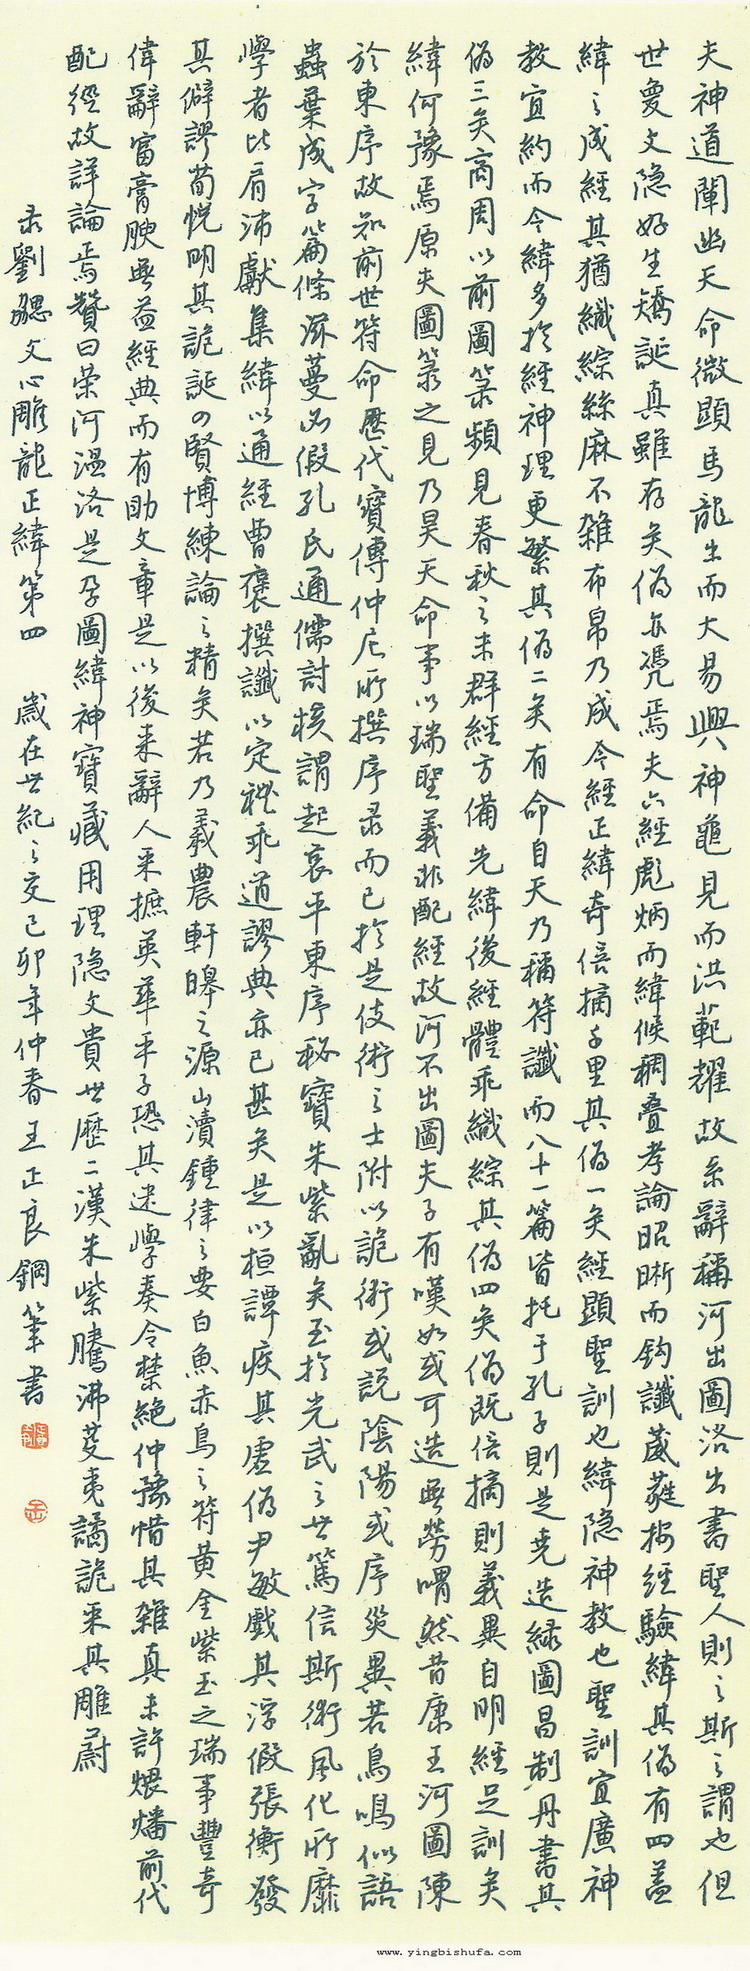 夫神道闡幽天命微顯馬龍出而大易興神龜見而洪範耀故系辭稱河出圖洛出書聖人則之斯之謂也但
世夐文隐好生矯誕真雖存矣偽亦凭焉夫六經彪炳而緯候稠叠孝論昭晰而鈎讖葳蕤按經驗緯其偽有四盖
緯之成經其猶織綜絲麻不雜布帛乃成今經正緯奇倍摘千里其偽一矣經顯聖訓也緯隐神教也聖訓宜廣神
教宜約而今緯多於經神理更繁其偽二矣有命自天乃稱符讖而八十一篇皆托于孔子則是堯造緑圖昌制丹書其
偽三矣商周以前圖箓頻見春秋之末群經方備先緯後經體乖織綜其偽四矣偽既倍摘則義異自明經足訓矣
緯何豫焉原夫圖箓之見乃昊天命事以瑞聖義非配經故河不出圖夫子有嘆如或可造無勞喟然昔康王河圖陳
於東序故知前世符命歷代寶傳仲尼所撰序录而已於是伎術之士附以詭術或説陰陽或序災異若鳥鳴似語
蟲葉成字篇條滋蔓必假孔氏通儒討核謂起哀平東序秘寶朱紫亂矣至於光武之世篤信斯術風化所靡
學者比肩沛獻集緯以通經曹褒撰讖以定禮乖道謬典亦已甚矣是以桓譚疾其虚偽尹敏戲其浮假張衡發
其僻謬荀悦明其詭誕四賢博練論之精矣若乃羲農軒皞之源山瀆鍾律之要白魚赤烏之符黄金紫玉之瑞事豐奇
偉辭富膏腴無益經典而有助文章是以後来辭人采摭英華平子恐其迷學奏令禁絶仲豫惜其雜真未許煨燔前代
配經故詳論焉贊曰荣河温洛是孕圖緯神寶藏用理隐文貴世歷二漢朱紫騰沸芟夷譎詭采其雕蔚
录劉勰文心雕龍正緯第四 歲在世紀之交己卯年仲春王正良鋼筆書
www.yingbishufa.com